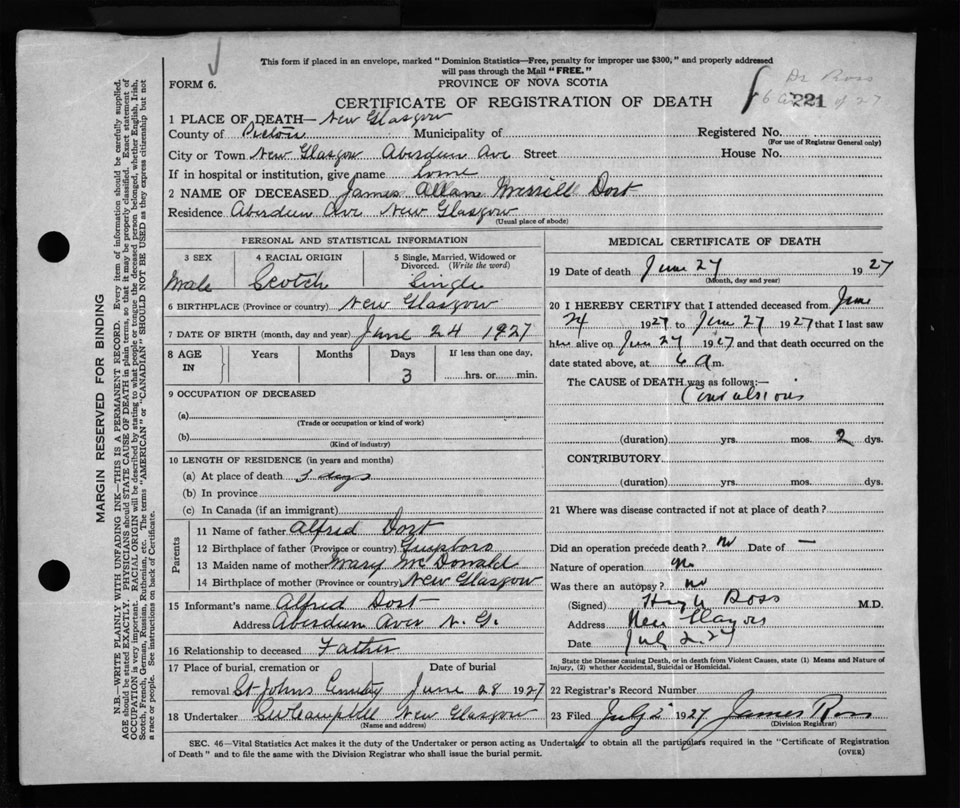 This form if placed in an envelope, marked "Dominion Statistics—Free, penalty for improper use $300," and properly addressed
will pass through the Mail "FREE."
FORM 6.
PROVINCE OF NOVA SCOTIA
Dr Ross
CERTIFICATE OF REGISTRATION OF DEATH
221 of 27
1 PLACE OF DEATH— New Glasgow
County of Pictou Municipality of Registered No.
(For use of Registrar General only)
City or Town New Glasgow Aberdeen Ave Street House No.
If in hospital or institution, give name
2 NAME OF DECEASED James Allan Merrill Dort
Residence Aberdeen Ave New Glasgow
(Usual place of abode)
PERSONAL AND STATISTICAL INFORMATION
3 SEX 4 RACIAL ORIGIN 5 Single, Married, Widowed or Divorced. (Write the word)
Male Scotch Single
6 BIRTHPLACE (Province or country) New Glasgow
7 DATE OF BIRTH (month, day and year) June 24 1927
8 AGE IN Years Months Days If less than one day,
3 hrs. or min.
9 OCCUPATION OF DECEASED
(a)
(Trade or occupation or kind of work)
(b)
(Kind of industry)
10 LENGTH OF RESIDENCE (in years and months)
(a) At place of death 3 days
(b) In province
(c) In Canada (if an immigrant)
Parents
11 Name of father Alfred Dort
12 Birthplace of father (Province or country) Guysboro
13 Maiden name of mother Mary McDonald
14 Birthplace of mother (Province or country) New Glasgow
15 Informant's name Alfred Dort
Address Aberdeen Ave N. G.
16 Relationship to deceased Father
17 Place of burial, cremation or Date of burial
removal St Johns Cemetry June 28 1927
18 Undertaker Campbell New Glasgow
(Name and address)
MEDICAL CERTIFICATE OF DEATH
19 Date of death June 27 1927
(Month, day and year)
20 I HEREBY CERTIFY that I attended deceased from June
24 1927 to June 27 1927 that I last saw
him alive on June 27 1927 and that death occurred on the
date stated above, at 6 a m.
The CAUSE of DEATH was as follows:—
Convulsions
(duration) yrs. mos. 2 dys.
CONTRIBUTORY
(duration) yrs. mos. dys.
21 Where was disease contracted if not at place of death?
Did an operation precede death? no Date of —
Nature of operation no
Was there an autopsy? no
(Signed) Hugh Ross M.D.
Address New Glasgow
Date July 2. 27
State the Disease causing Death, or in death from Violent Causes, state (1) Means and Nature of
Injury, (2) whether Accidental, Suicidal or Homicidal.
22 Registrar's Record Number
23 Filed July 2 1927 James Ross
(Division Registrar)
SEC. 46—Vital Statistics Act makes it the duty of the Undertaker or person acting as Undertaker to obtain all the particulars required in the "Certificate of Registration
of Death" and to file the same with the Division Registrar who shall issue the burial permit. (OVER)
MARGIN RESERVED FOR BINDING
N.B.—WRITE PLAINLY WITH UNFADING INK—THIS IS A PERMANENT RECORD. Every item of information should be carefully supplied.
AGE should be stated EXACTLY. PHYSICIANS should STATE CAUSE OF DEATH in plain terms, so that it may be properly classified. Exact statement of
OCCUPATION is very important. RACIAL ORIGIN will be described by stating to what people or tongue the deceased person belonged, whether English, Irish,
Scotch, French, German, Russian, Ruthenian, etc. The terms "AMERICAN" or "CANADIAN" SHOULD NOT BE USED as they express citizenship but not
a race or people. See instructions on back of Certificate.